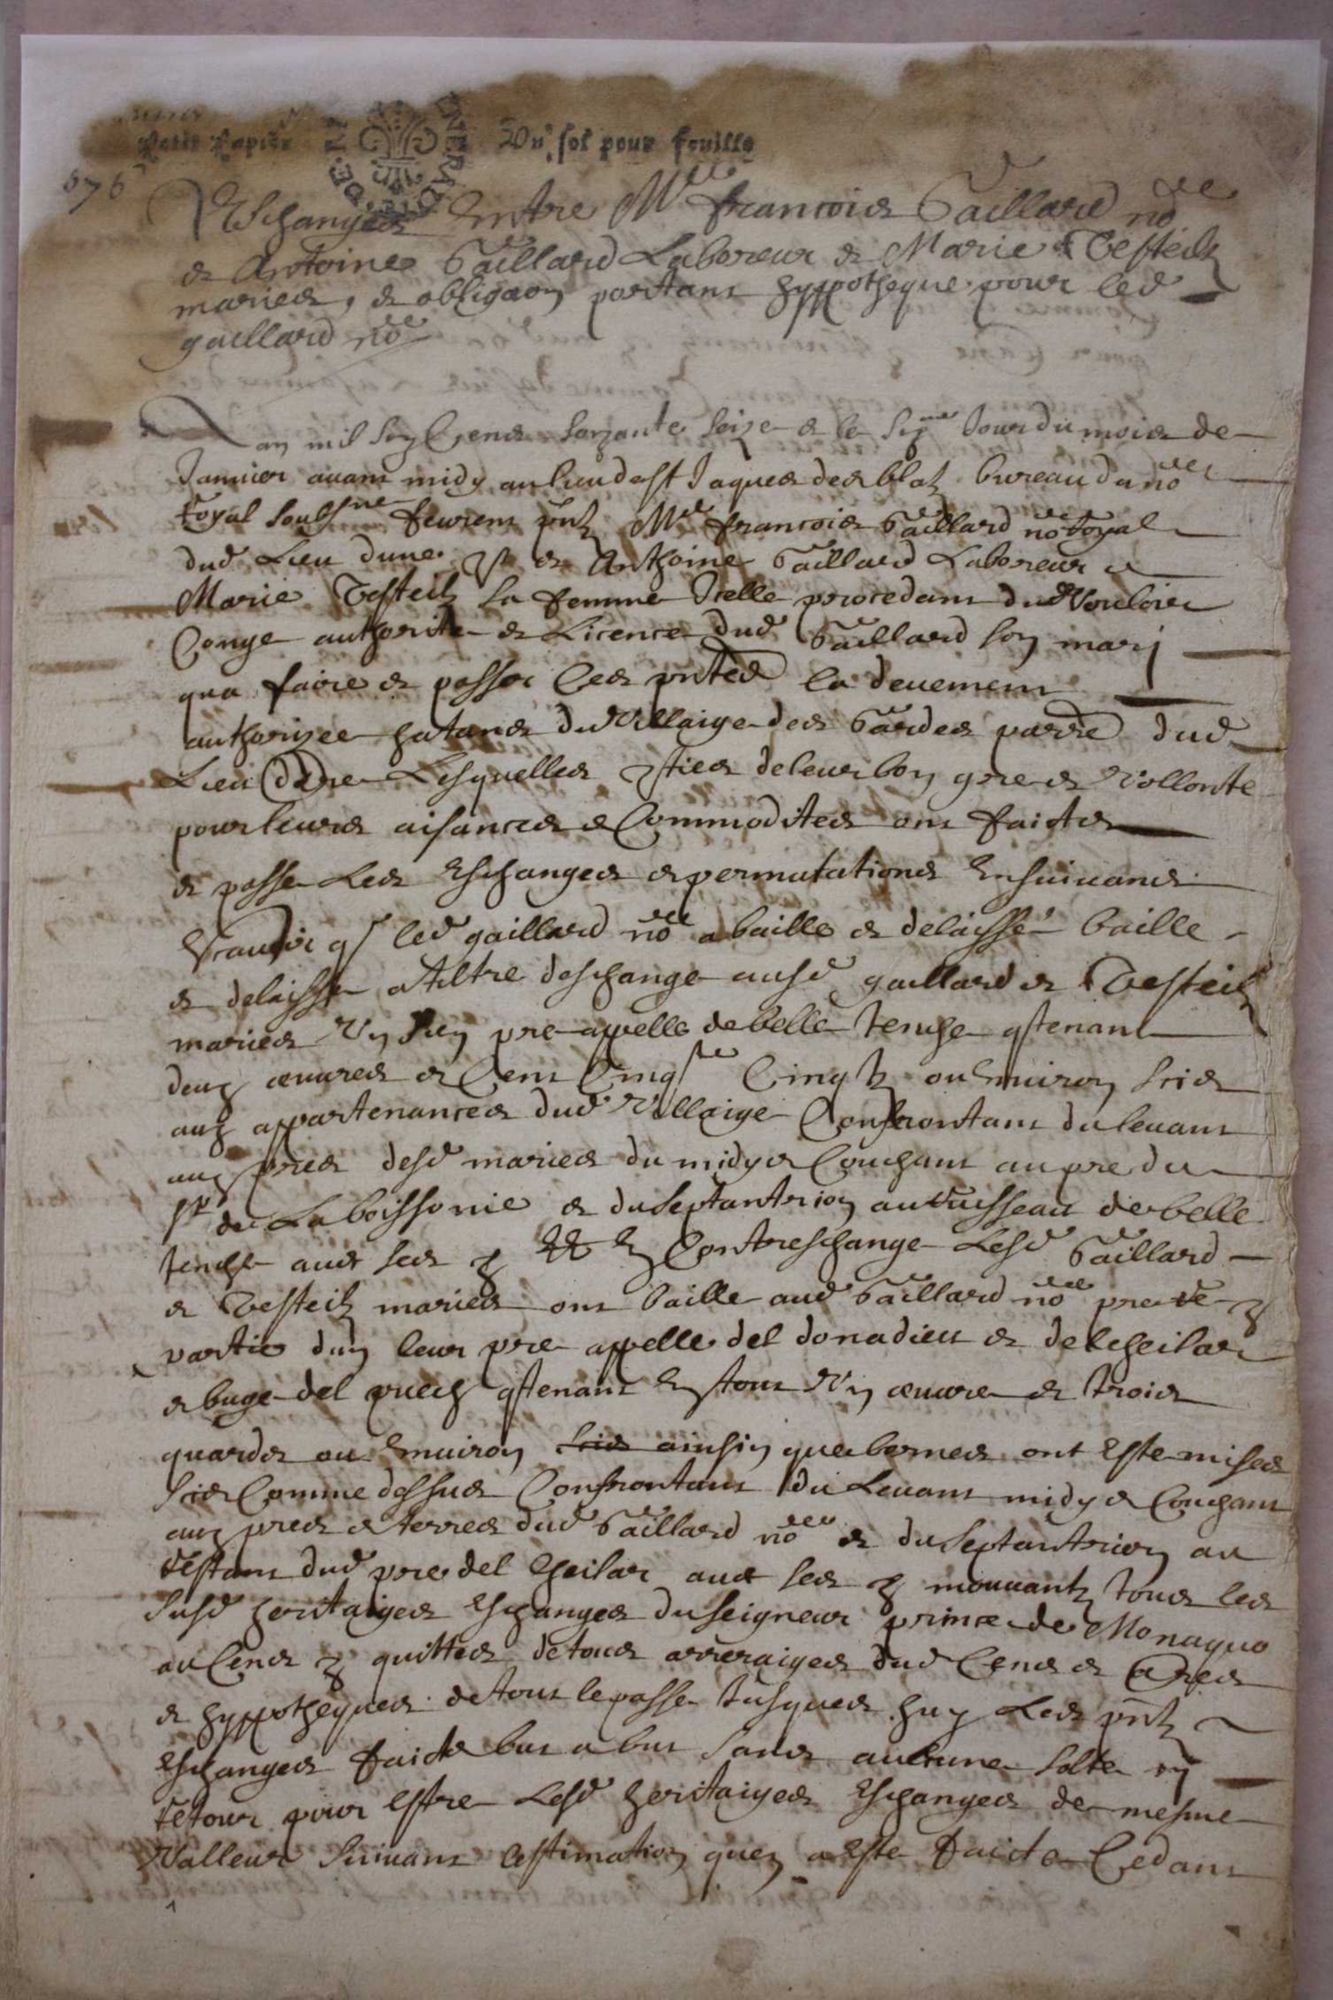 Petit Papier Un sol pour feuille
676
Eschanges Entre Me francois Gaillard nore
& Antoine Gaillard Laboreur & Marie Testeilz
maries, & obligaon portant hyppotheque pour led
gaillard nore
Lan mil six Cens soixante seize & le sixme Jour du mois de
Janvier avant midy au lieu de st Jaques des blatz bureau du nore
royal soubsne feurent pntz Me francois Gaillard nore royal
dud Lieu dune pt & Anthoine Gaillard Laboreur &
Marie Testeilz sa femme Icelle procedant du Vouloir
Conge authorite & Licence dud Gaillard son mari
qua faire & passer les pntes la deuement
authorisee hatans du Villaige des Gardes parre dud
Lieu dare Lesquelles pties de leur bon gre & Vollonte
pour leurs aisances & Commodites ont faictes
& passe Les Eschanges & permutations Ensuivans
Scavoir q led gaillard nore a baille & delaisse baille
& delaisse a tiltre deschange ausd gaillard & Testeilz
maries Un sien pre appelle de belle tenche qtenant
deux oeuvres & Cent Cinqte Cinq tz ou Environ scis
aux appartenances dud Villaige Confrontant du levant
aux pres desd maries du midy & Couchant au pre du
sr de La boissonie & du septantrion au ruisseau de belle
tenche avec ses & Et En Contreschange Lesd Gaillard
& Testeilz maries ont baille aud Gaillard nore
partie dun leur pre appelle del donadieu & del cheilar
& buge del puech qtenant En tout Un oeuvre & trois
quardz ou Environ scis ainsin que bornes ont Este mises
scis Comme dessus Confrontant du Levant midy & Couchant
aux pres & terres dud Gaillard nore & du septantrion au
restant dud pre del cheilar avec ses & mouvantz tous les
susd heritaiges Eschanges du seigneur prince de Monaquo
au Cens & quittes de tous arreraiges dud Cens &
& hyppotheques de tout le passe Jusques huy Les pntz
Eschanges faictz but a but sans aulcune solte ny
retour pour Estre Lesd heritaiges Eschanges de mesme
Valleur suivant lestimation quen a Este faicte Cedant